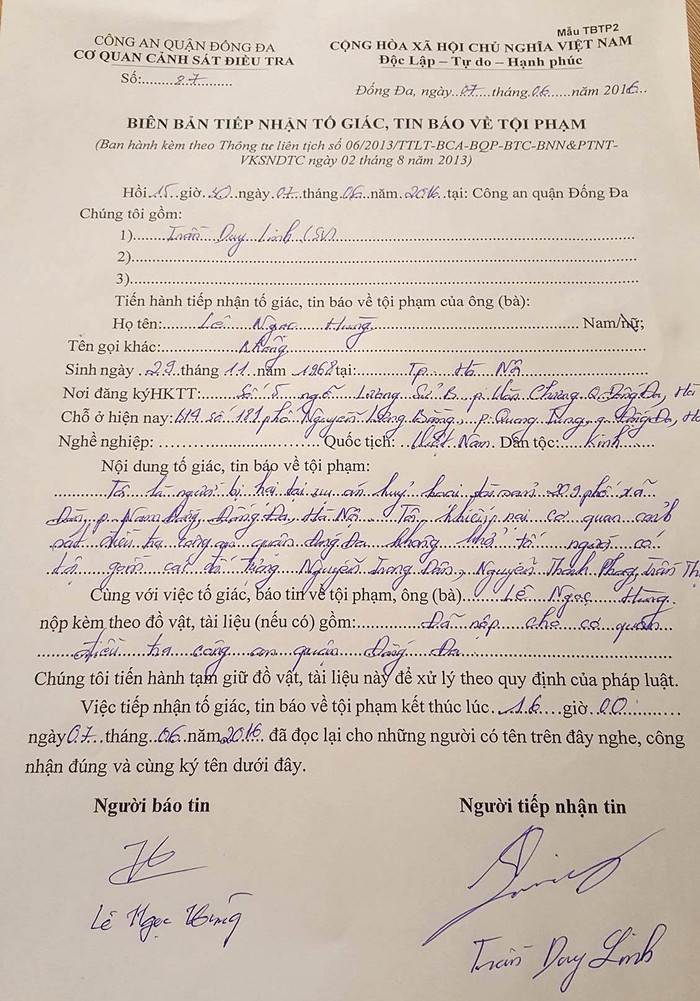 Mẫu TBTP2
CÔNG AN QUẬN ĐỐNG ĐA
CỘNG HÒA XÃ HỘI CHỦ NGHĨA VIỆT NAM
CƠ QUAN CẢNH SÁT ĐIỀU TRA
Độc Lập – Tự do – Hạnh phúc
Số:.........87............
Đống Đa, ngày..07....tháng..06.....năm 2016..
BIÊN BẢN TIẾP NHẬN TỐ GIÁC, TIN BÁO VỀ TỘI PHẠM
(Ban hành kèm theo Thông tư liên tịch số 06/2013/TTLT-BCA-BQP-BTC-BNN&PTNT-
VKSNDTC ngày 02 tháng 8 năm 2013)
Hồi.15..giờ.30.ngày.07..tháng.06.năm..2016.tại: Công an quận Đống Đa
Chúng tôi gồm:
1)........Trần Duy Linh
2)........
3)........
Tiến hành tiếp nhận tố giác, tin báo về tội phạm của ông (bà):
Họ tên:.......Lê Ngọc Hùng........Nam/nữ;
Tên gọi khác:........Không........
Sinh ngày .29.tháng.11.năm 1968tại:........Tp. Hà Nội
Nơi đăng kýHKTT:......Số 5 ngõ Lương Sử B. p. Văn Chương Q. Đống Đa, Hà
Chỗ ở hiện nay: số 181 phố Nguyễn Lương Bằng, p. Quang Trung, q. Đống Đa, Hà
Nghề nghiệp: ........Quốc tịch: .Việt Nam. Dân tộc:....Kinh....
Nội dung tố giác, tin báo về tội phạm:
........Tôi là người bị hại tại vụ án huỷ hoại tài sản 209 phố xã
Đàn, p. Nam Đồng, Đống Đa, Hà Nội. Tôi khiếu nại cơ quan cảnh
sát điều tra công an quận đống Đa không khởi tố người có
gồm Nguyễn Trọng Nguyễn Thành Trần Thị
Cùng với việc tố giác, báo tin về tội phạm, ông (bà)....Lê Ngọc Hùng.
nộp kèm theo đồ vật, tài liệu (nếu có) gồm:........Đã nộp cho cơ quan
điều tra công an quận Đống Đa........
Chúng tôi tiến hành tạm giữ đồ vật, tài liệu này để xử lý theo quy định của pháp luật.
Việc tiếp nhận tố giác, tin báo về tội phạm kết thúc lúc..16.....giờ..00........
ngày07..tháng..06.năm.2016. đã đọc lại cho những người có tên trên đây nghe, công
nhận đúng và cùng ký tên dưới đây.
Người báo tin
Người tiếp nhận tin
Lê Ngọc Hùng
Trần Duy Linh